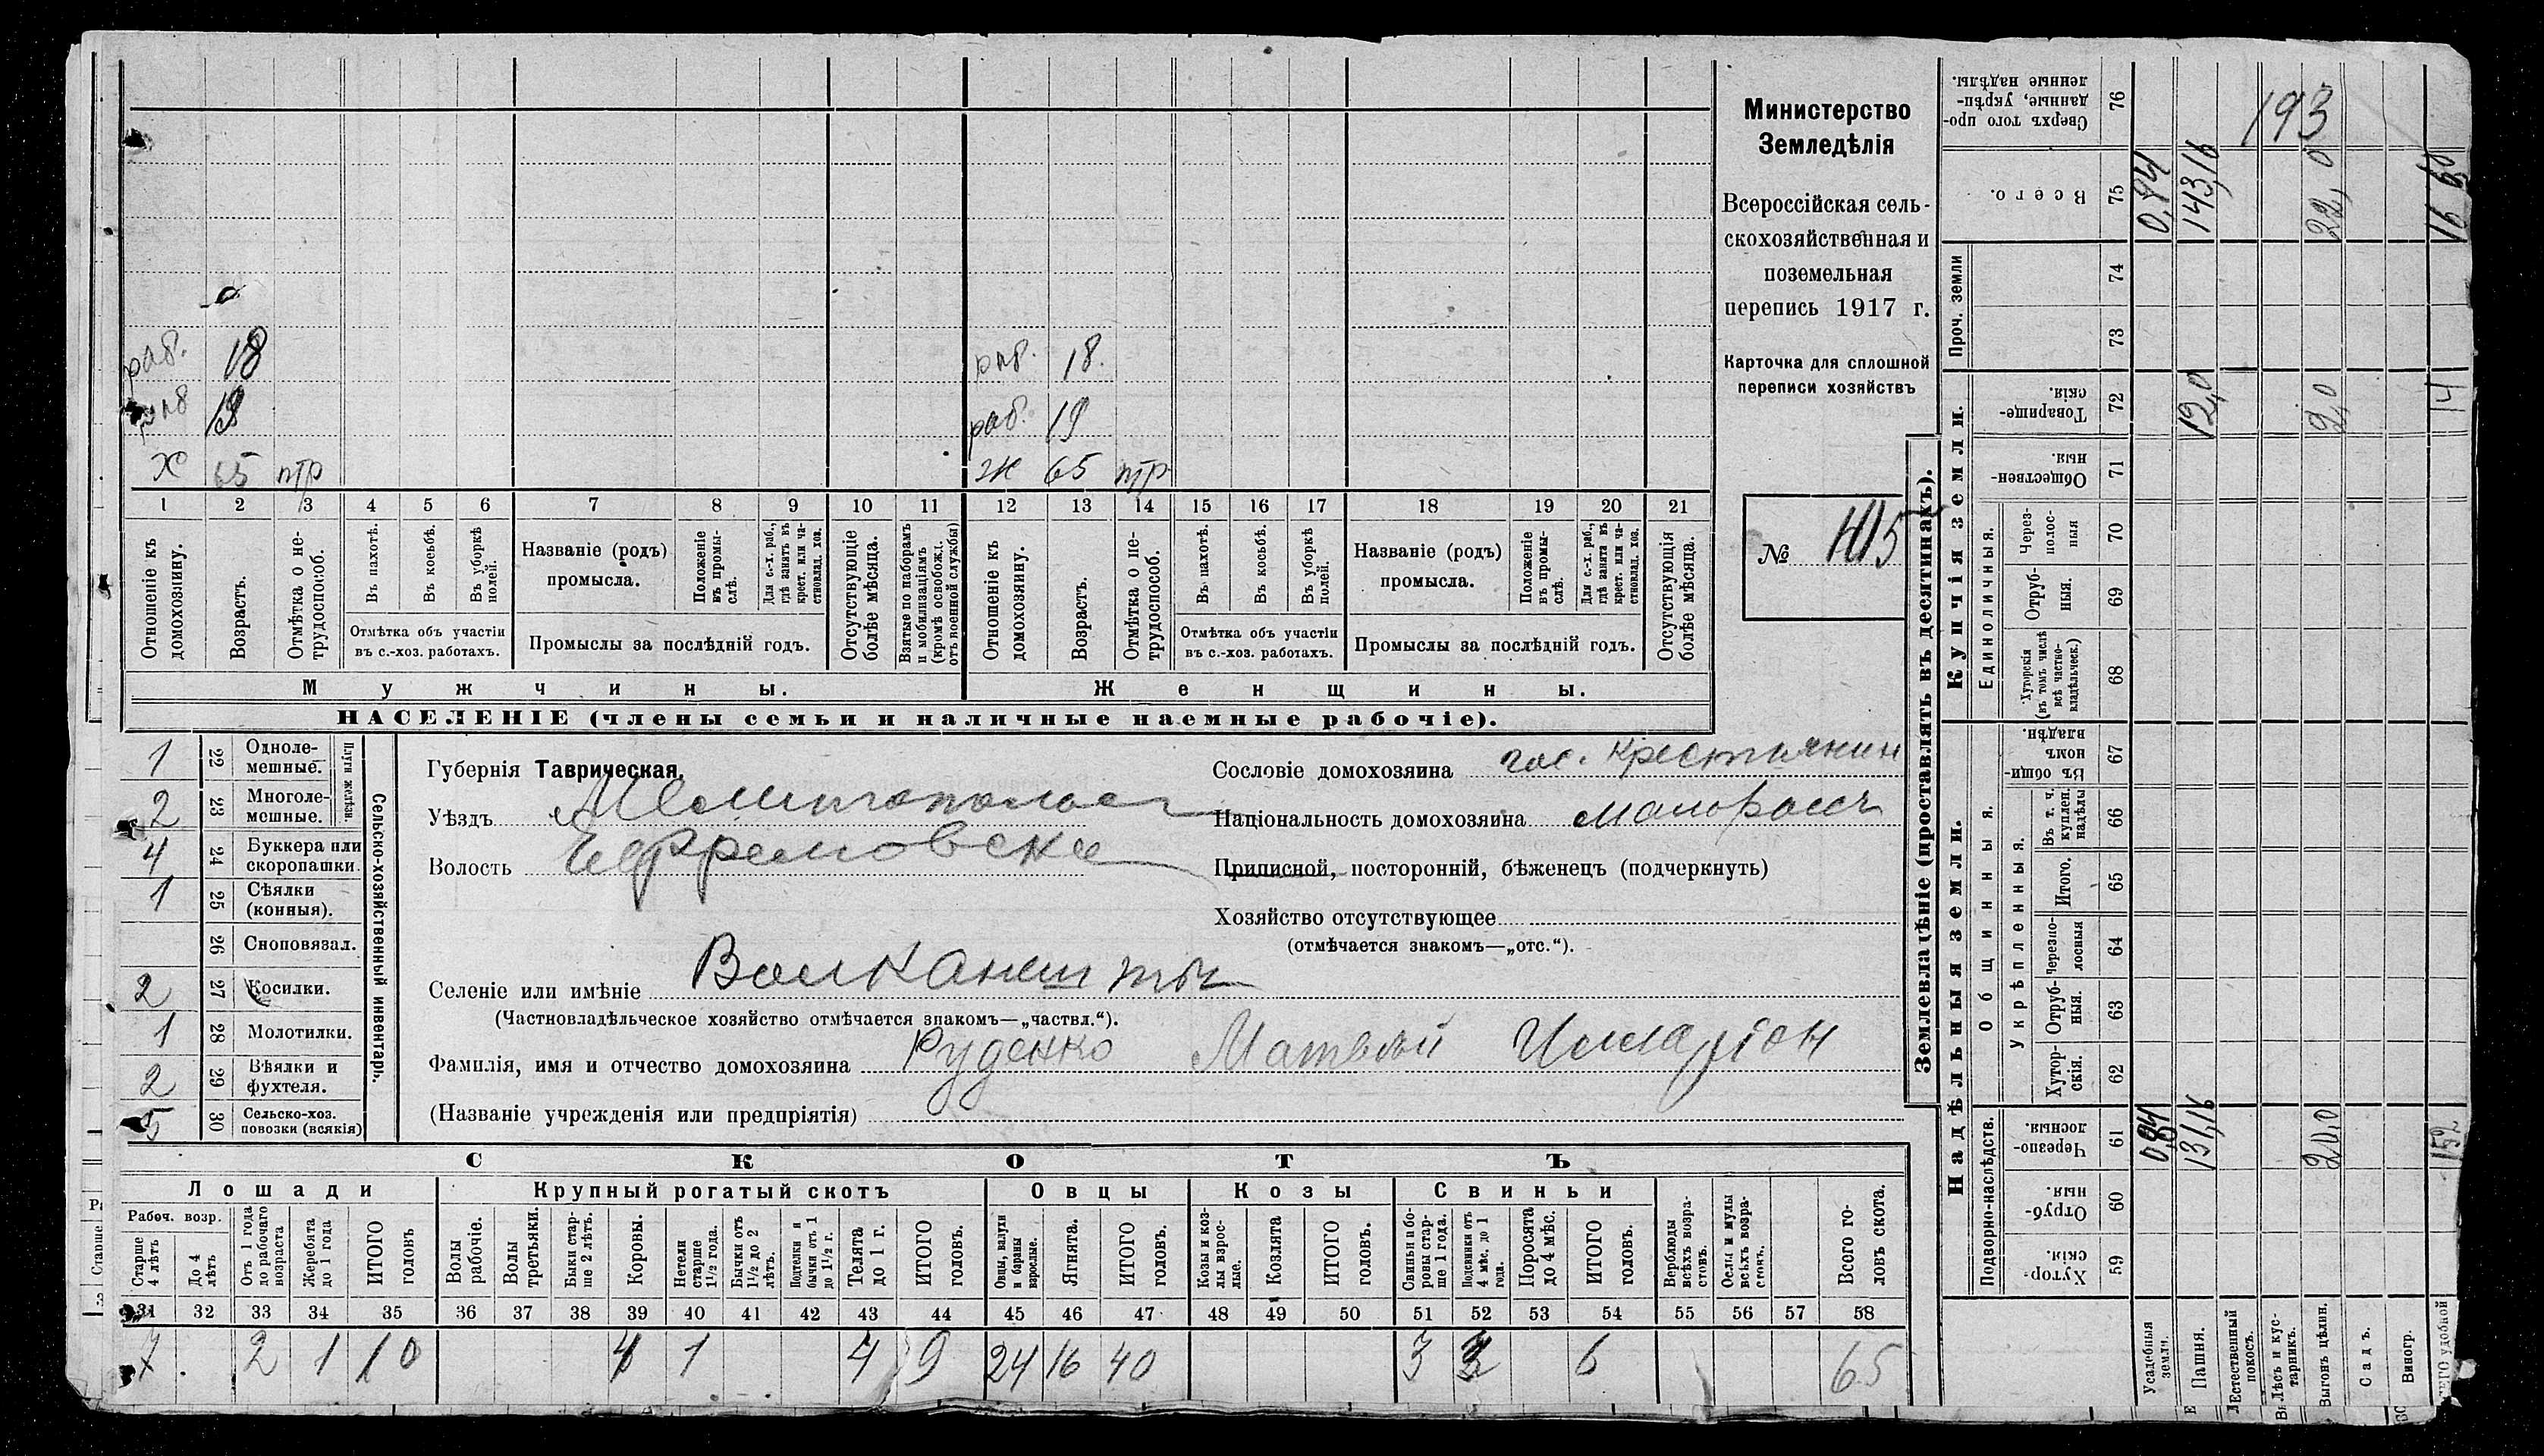 раб. 18 раб. 18.
раб 19 раб. 19
Х 65 нтр Ж 65 нтр
1 2 3 4 5 6 7 8 9 10 11 12 13 14 15 16 17 18 19 20 21
Отношеніе къ домохозяину.
Возрастъ.
Отмѣтка о нетрудоспособ.
Въ пахотѣ.
Въ косьбѣ.
Въ уборкѣ полей.
Отмѣтка объ участіи
въ с.-хоз. работахъ.
Названіе (родъ)
промысла.
Положеніе въ промыслѣ.
Для с.-х. раб., гдѣ занятъ въ крест. или частновлад. хоз.
Промыслы за послѣдній годъ.
Отсутствующіе болѣе мѣсяца.
Взятые по наборамъ и мобилизаціямъ (кромѣ освобожд. отъ военной службы)
Отношеніе къ домохозяину.
Возрастъ.
Отмѣтка о нетрудоспособ.
Въ пахотѣ.
Въ косьбѣ.
Въ уборкѣ полей.
Отмѣтка объ участіи
въ с.-хоз. работахъ.
Названіе (родъ)
промысла.
Положеніе въ промыслѣ.
Для с.-х. раб., гдѣ занята въ крест. или частновлад. хоз.
Промыслы за послѣдній годъ.
Отсутствующія болѣе мѣсяца.
Мужчины. Женщины.
НАСЕЛЕНІЕ (члены семьи и наличные наемные рабочіе).
Министерство
Земледѣлія
Всероссійская сель-
скохозяйственная и
поземельная
перепись 1917 г.
Карточка для сплошной
переписи хозяйствъ
№ 105
Сельско-хозяйственный инвентарь.
Плуги желѣзн.
1 22 Одноле-
мешные.
2 23 Многоле-
мешные.
4 24 Буккера или
скоропашки.
1 25 Сѣялки
(конныя).
26 Сноповязал.
2 27 Косилки.
1 28 Молотилки.
2 29 Вѣялки и
фухтеля.
5 30 Сельско-хоз.
повозки (всякія)
Губернія Таврическая.
Уѣздъ Мелитопольск
Волость Ефремовска
Селеніе или имѣніе Волканешты
(Частновладѣльческое хозяйство отмѣчается знакомъ—„частвл.“).
Фамилія, имя и отчество домохозяина Руденко Матвѣй Илларіон
(Названіе учрежденія или предпріятія)
Сословіе домохозяина гос. крестьянин
Національность домохозяина малоросъ
Приписной, посторонній, бѣженецъ (подчеркнуть)
Хозяйство отсутствующее
(отмѣчается знакомъ—„отс.“).
СКОТЪ
Лошади Крупный рогатый скотъ Овцы Козы Свиньи
Рабоч. возр.
Старше 4 лѣтъ
До 4 лѣтъ
Отъ 1 года до рабочаго возраста
Жеребята до 1 года
ИТОГО головъ
Волы рабочіе.
Волы третьяки.
Быки старше 2 лѣтъ.
Коровы.
Нетели старше 1½ года.
Бычки отъ 1½ до 2 лѣтъ.
Подтелки и бычки отъ 1 до 1½ г.
Телята до 1 г.
ИТОГО головъ.
Овцы, валухи и бараны взрослые.
Ягнята.
ИТОГО головъ.
Козы и козлы взрослые.
Козлята
ИТОГО головъ.
Свиньи и боровы старше 1 года.
Подсвинки отъ 4 мѣс. до 1 года.
Поросята до 4 мѣс.
ИТОГО головъ.
Верблюды всѣхъ возрастовъ.
Ослы и мулы всѣхъ возрастовъ.
Всего головъ скота.
31 32 33 34 35 36 37 38 39 40 41 42 43 44 45 46 47 48 49 50 51 52 53 54 55 56 57 58
7 2 1 10 4 1 4 9 24 16 40 3 3 6 65
Землевладѣніе (проставлять въ десятинахъ).
Надѣльныя земли. Купчія земли.
Подворно-наслѣдств.
Общинныя.
Укрѣпленныя.
Единоличныя.
Проч. земли
Хуторскія. 59
Отрубныя. 60
Черезполосныя. 61
Хуторскія. 62
Отрубныя. 63
Черезполосныя 64
Итого. 65
Въ т. ч. куплен. надѣлы 66
Въ общинномъ владѣн. 67
Хуторскія (въ томъ числѣ всѣ частновладѣльческ.) 68
Отрубныя. 69
Черезполосныя 70
Общественныя. 71
Товарищескія. 72
73
74
Всего. 75
Сверхъ того проданные, укрѣпленные надѣлы. 76
Усадебныя земли. 0,84 0,94
Пашня. 131,16 12,0 143,16
Естественный покосъ.
Лѣсъ и кустарникъ. 193
Выгонъ цѣлин. 20,0 2,0 22,0
Садъ.
Виногр.
удобной 152 14